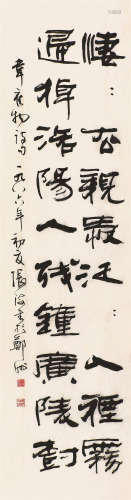 凄〻去親愛泛〻入烟霧
歸棹洛陽人殘鐘廣陵樹
韋應物詩句一九八六年初夏張海書於鄭州